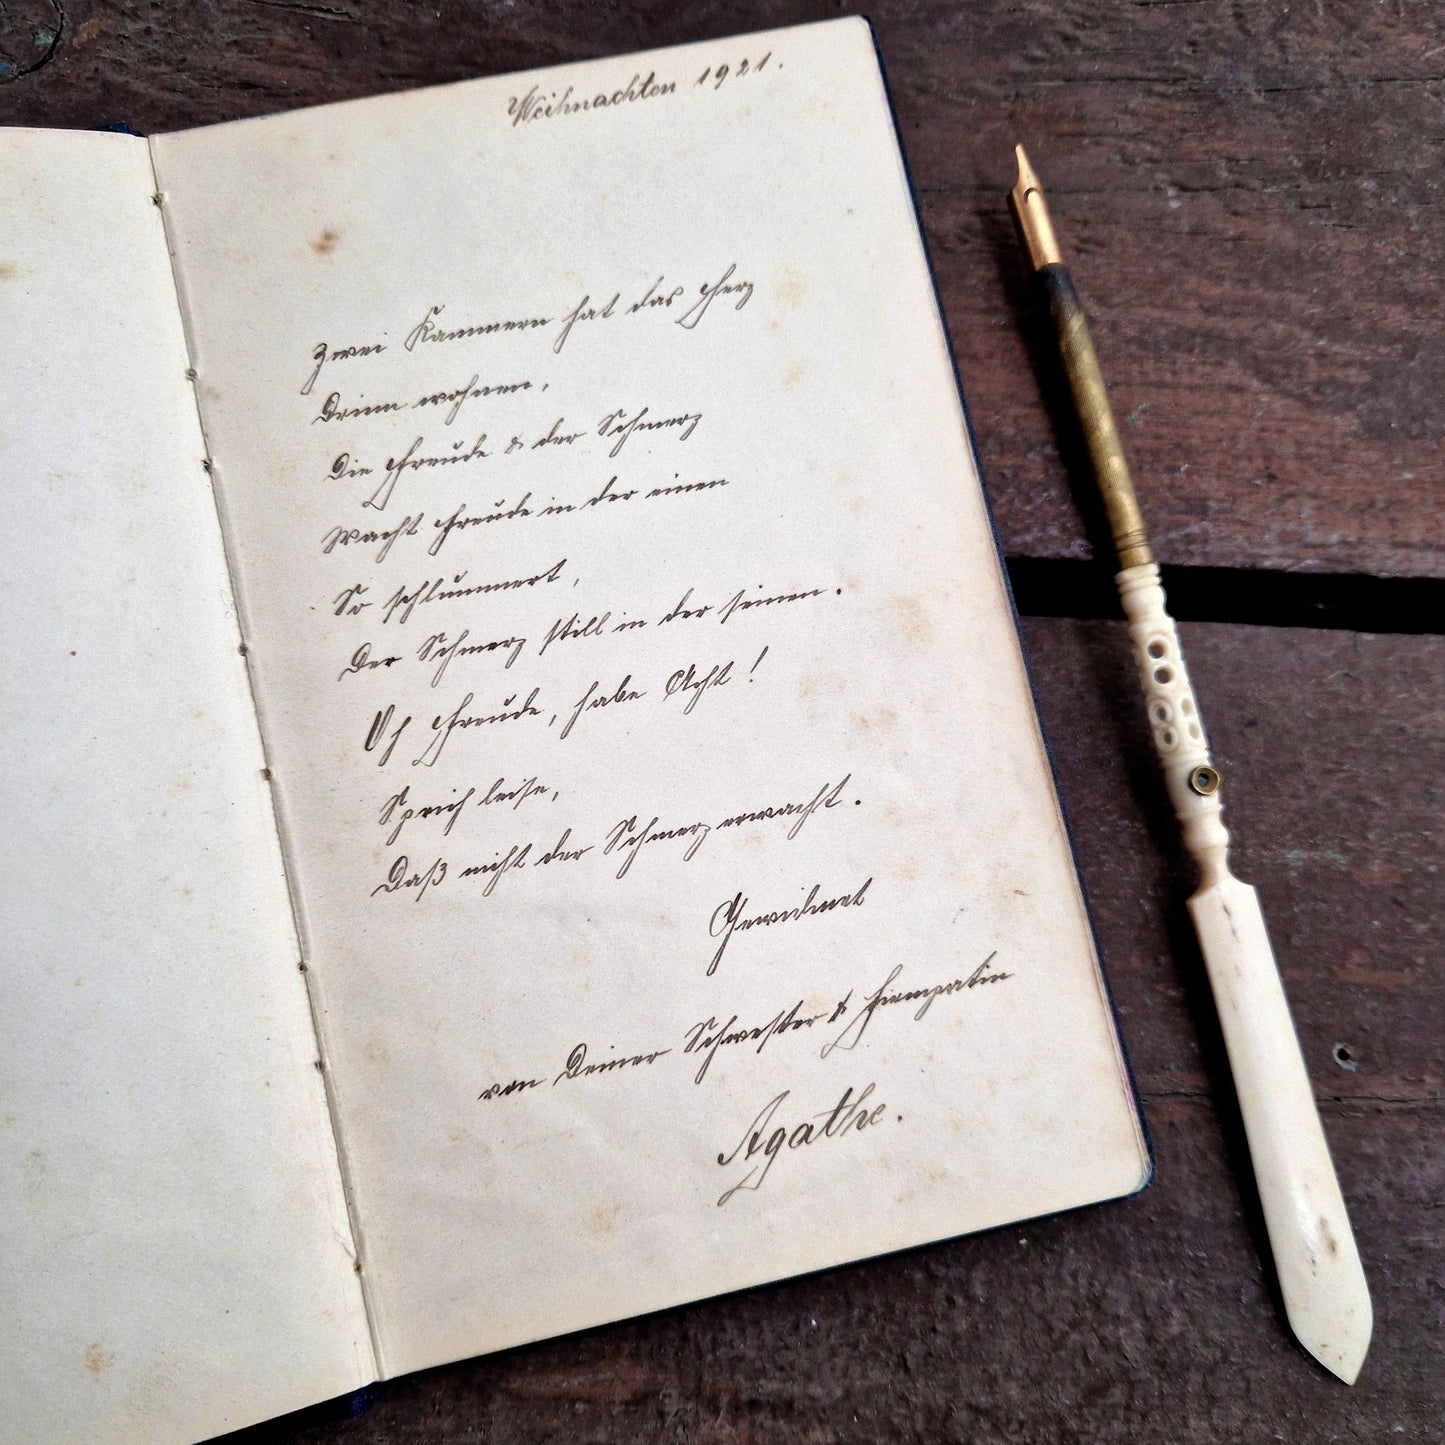 Weihnachten 1921.
Zwei Kammern hat das Herz
Drinn wohnen,
Die Freude & der Schmerz
Wacht Freude in der einen
So schlummert,
Der Schmerz still in der seinen.
Oh Freude, habe Acht!
Sprich leise,
Daß nicht der Schmerz erwacht.
Gewidmet
von Deiner Schwester &
Agathe.